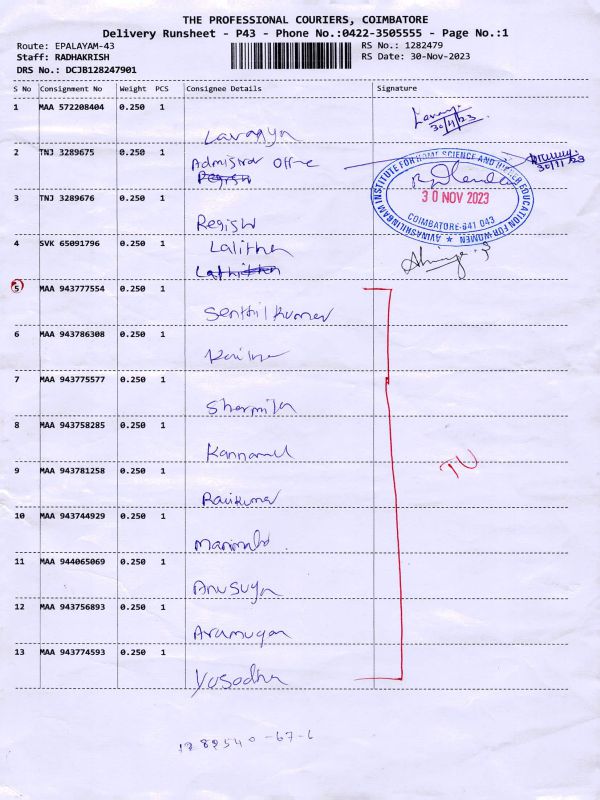 THE PROFESSIONAL COURIERS, COIMBATORE
Delivery Runsheet - P43 - Phone No.:0422-3505555 - Page No.:1
Route: EPALAYAM-43 RS No.: 1282479
Staff: RADHAKRISH RS Date: 30-Nov-2023
DRS No.: DCJB128247901
S No Consignment No Weight PCS Consignee Details Signature
1 MAA 572208404 0.250 1
Lavanya
30/11/23
2 TNJ 3289675 0.250 1
Admistrar Office
30/11/23
AVINASHILINGAM INSTITUTE FOR HOME SCIENCE AND HIGHER EDUCATION FOR WOMEN
30 NOV 2023
COIMBATORE-641 043
3 TNJ 3289676 0.250 1
Registr
4 SVK 65091796 0.250 1
Lalitha
5 MAA 943777554 0.250 1
Senthilkumar
6 MAA 943786308 0.250 1
7 MAA 943775577 0.250 1
Sharmila
8 MAA 943758285 0.250 1
Kannamal
9 MAA 943781258 0.250 1
Ravikumar
10 MAA 943744929 0.250 1
11 MAA 944065069 0.250 1
Anusuya
12 MAA 943756893 0.250 1
Aramugam
13 MAA 943774593 0.250 1
Yasodha
TU
1282540-67-6